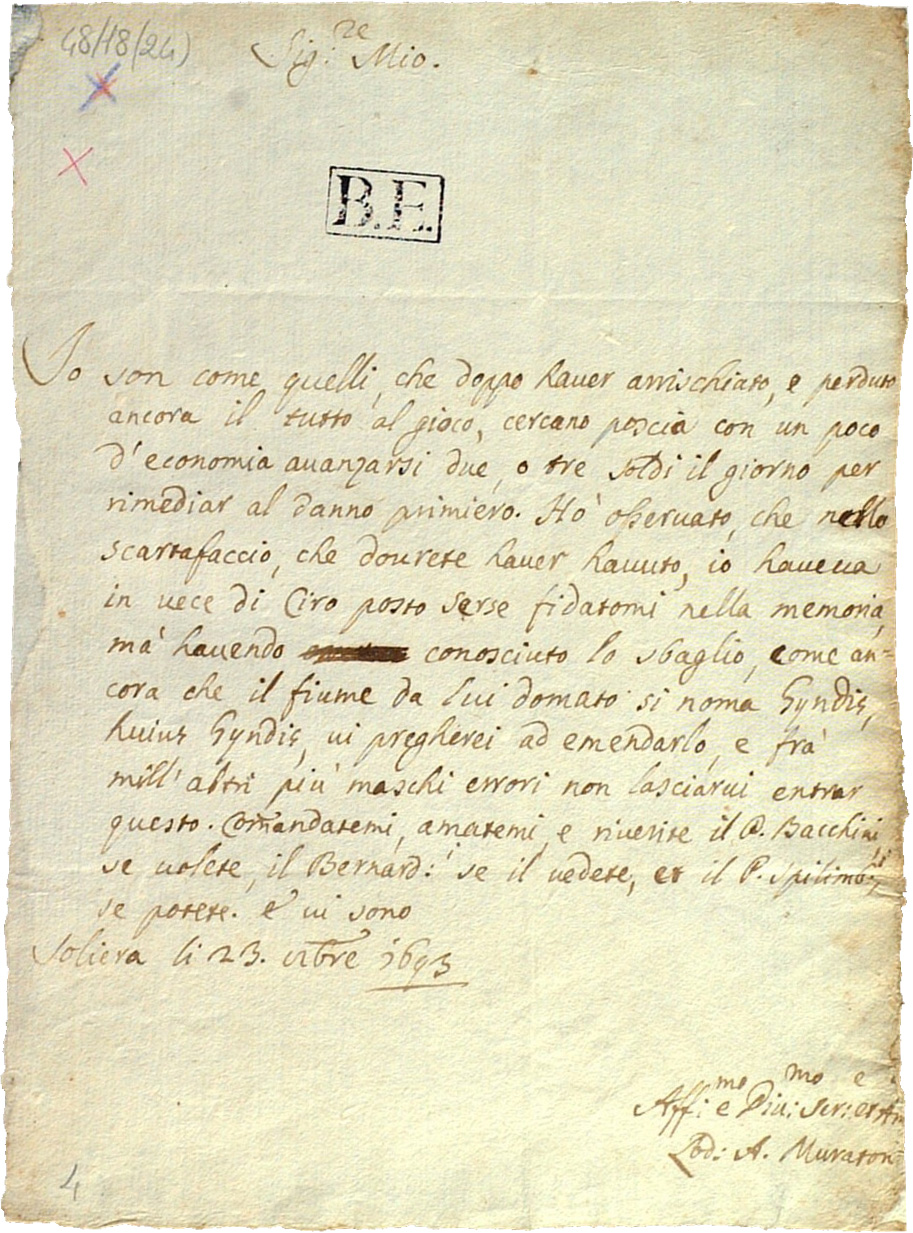 48/18(24)
Sig:re Mio.
B.E.
Io son come quelli, che doppo hauer arrischiato, e perduto
ancora il tutto al gioco, cercano poscia con un poco
d'economia auanzarsi due, o tre soldi il giorno per
rimediar al danno primiero. Hò osseruato, che nello
scartafaccio, che dourete hauer hauuto, io haueua
in uece di Ciro posto Serse fidatomi nella memoria,
mà hauendo conosciuto lo sbaglio, come an=
cora che il fiume da lui domato si noma Gyndis,
huius Gyndis, ui pregherei ad emendarlo, e frà
mill'altri più maschi errori non lasciarui entrar
questo. Comandatemi, amatemi, e riuerite il P. Bacchini
se uolete, il Bernard:i se il uedete, et il P. Spilimb:
se potete. e ui sono
Soliera li 23. 1693
Aff:mo e Diu:mo Ser:e et Am
Lod: A. Muratori
4